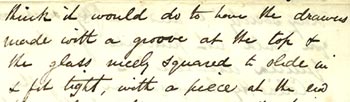 think it would do to have the drawers
made with a groove at the top &
the glass nicely squared to slide in
& fit tight, with a piece at the end